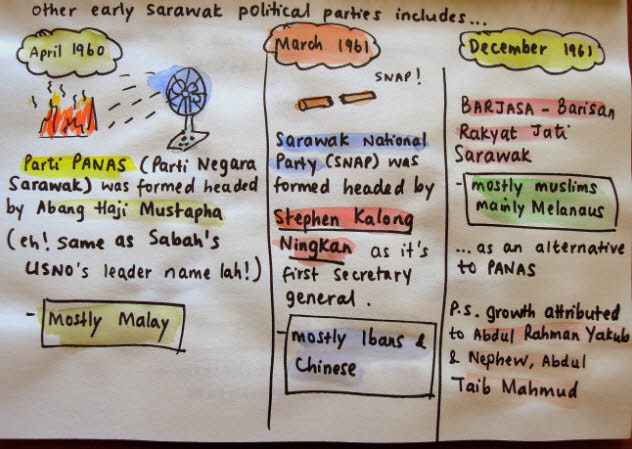 other early Sarawak political parties includes...
April 1960
Parti PANAS (Parti Negara
Sarawak) was formed headed
by Abang Haji Mustapha
(eh! same as Sabah's
USNO's leader name lah!)
- Mostly Malay
March 1961
SNAP!
Sarawak National
Party (SNAP) was
formed headed by
Stephen Kalong
Ningkan as it's
first secretary
general.
- mostly Ibans &
Chinese
December 1961
BARJASA - Barisan
Rakyat Jati
Sarawak
- mostly muslims
mainly Melanaus
... as an alternative
to PANAS
P.S. growth attributed
to Abdul Rahman Yakub
& Nephew, Abdul
Taib Mahmud